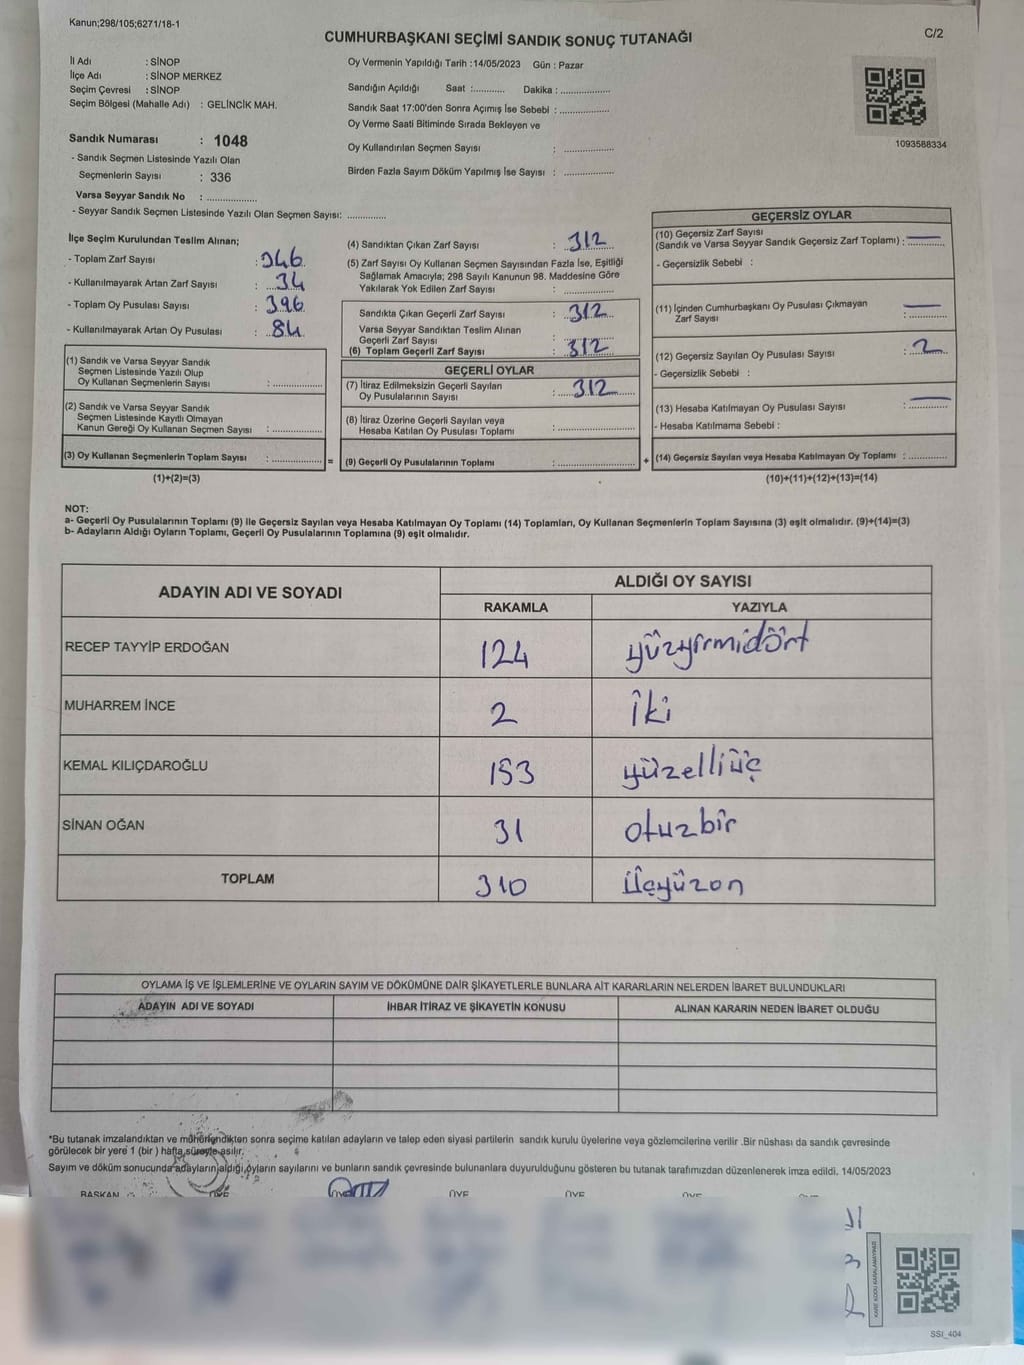 Kanun;298/105;6271/18-1
C/2
CUMHURBAŞKANI SEÇİMİ SANDIK SONUÇ TUTANAĞI
İl Adı : SİNOP
İlçe Adı : SİNOP MERKEZ
Seçim Çevresi : SİNOP
Seçim Bölgesi (Mahalle Adı) : GELİNCİK MAH.
Sandık Numarası : 1048
- Sandık Seçmen Listesinde Yazılı Olan
Seçmenlerin Sayısı : 336
Varsa Seyyar Sandık No : ..................
- Seyyar Sandık Seçmen Listesinde Yazılı Olan Seçmen Sayısı: ..............
Oy Vermenin Yapıldığı Tarih :14/05/2023 Gün : Pazar
Sandığın Açıldığı Saat :............ Dakika : ..................
Sandık Saat 17:00'den Sonra Açımış İse Sebebi : ..................
Oy Verme Saati Bitiminde Sırada Bekleyen ve
Oy Kullandırılan Seçmen Sayısı : ..................
Birden Fazla Sayım Döküm Yapılmış İse Sayısı : ..................
1093588334
İlçe Seçim Kurulundan Teslim Alınan;
- Toplam Zarf Sayısı : 346
- Kullanılmayarak Artan Zarf Sayısı : 34
- Toplam Oy Pusulası Sayısı : 396
- Kullanılmayarak Artan Oy Pusulası : 84
(1) Sandık ve Varsa Seyyar Sandık
Seçmen Listesinde Yazılı Olup
Oy Kullanan Seçmenlerin Sayısı : ..................
(2) Sandık ve Varsa Seyyar Sandık
Seçmen Listesinde Kayıtlı Olmayan
Kanun Gereği Oy Kullanan Seçmen Sayısı : ..................
(3) Oy Kullanan Seçmenlerin Toplam Sayısı : .................. =
(1)+(2)=(3)
(4) Sandıktan Çıkan Zarf Sayısı : 312
(5) Zarf Sayısı Oy Kullanan Seçmen Sayısından Fazla İse, Eşitliği
Sağlamak Amacıyla; 298 Sayılı Kanunun 98. Maddesine Göre
Yakılarak Yok Edilen Zarf Sayısı : ..................
Sandıkta Çıkan Geçerli Zarf Sayısı : 312
Varsa Seyyar Sandıktan Teslim Alınan
Geçerli Zarf Sayısı : ..................
(6) Toplam Geçerli Zarf Sayısı : 312
GEÇERLİ OYLAR
(7) İtiraz Edilmeksizin Geçerli Sayılan
Oy Pusulalarının Sayısı : 312
(8) İtiraz Üzerine Geçerli Sayılan veya
Hesaba Katılan Oy Pusulası Toplamı : ..................
(9) Geçerli Oy Pusulalarının Toplamı : .................. +
GEÇERSİZ OYLAR
(10) Geçersiz Zarf Sayısı
(Sandık ve Varsa Seyyar Sandık Geçersiz Zarf Toplamı) : —
- Geçersizlik Sebebi :
(11) İçinden Cumhurbaşkanı Oy Pusulası Çıkmayan
Zarf Sayısı : —
(12) Geçersiz Sayılan Oy Pusulası Sayısı : 2
- Geçersizlik Sebebi :
(13) Hesaba Katılmayan Oy Pusulası Sayısı : —
- Hesaba Katılmama Sebebi :
(14) Geçersiz Sayılan veya Hesaba Katılmayan Oy Toplamı : ............
(10)+(11)+(12)+(13)=(14)
NOT:
a- Geçerli Oy Pusulalarının Toplamı (9) ile Geçersiz Sayılan veya Hesaba Katılmayan Oy Toplamı (14) Toplamları, Oy Kullanan Seçmenlerin Toplam Sayısına (3) eşit olmalıdır. (9)+(14)=(3)
b- Adayların Aldığı Oyların Toplamı, Geçerli Oy Pusulalarının Toplamına (9) eşit olmalıdır.
ADAYIN ADI VE SOYADI ALDIĞI OY SAYISI
RAKAMLA YAZIYLA
RECEP TAYYİP ERDOĞAN 124 yüzyirmidört
MUHARREM İNCE 2 iki
KEMAL KILIÇDAROĞLU 153 yüzelliüç
SİNAN OĞAN 31 otuzbir
TOPLAM 310 üçyüzon
OYLAMA İŞ VE İŞLEMLERİNE VE OYLARIN SAYIM VE DÖKÜMÜNE DAİR ŞİKAYETLERLE BUNLARA AİT KARARLARIN NELERDEN İBARET BULUNDUKLARI
ADAYIN ADI VE SOYADI İHBAR İTİRAZ VE ŞİKAYETİN KONUSU ALINAN KARARIN NEDEN İBARET OLDUĞU
*Bu tutanak imzalandıktan ve mühürlendikten sonra seçime katılan adayların ve talep eden siyasi partilerin sandık kurulu üyelerine veya gözlemcilerine verilir .Bir nüshası da sandık çevresinde
görülecek bir yere 1 (bir ) hafta süreyle asılır.
Sayım ve döküm sonucunda adayların aldığı oyların sayılarını ve bunların sandık çevresinde bulunanlara duyurulduğunu gösteren bu tutanak tarafımızdan düzenlenerek imza edildi. 14/05/2023
BAŞKAN ÜYE ÜYE ÜYE ÜYE ÜYE ÜYE
KARE KODU KARALAMAYINIZ
SSI_404